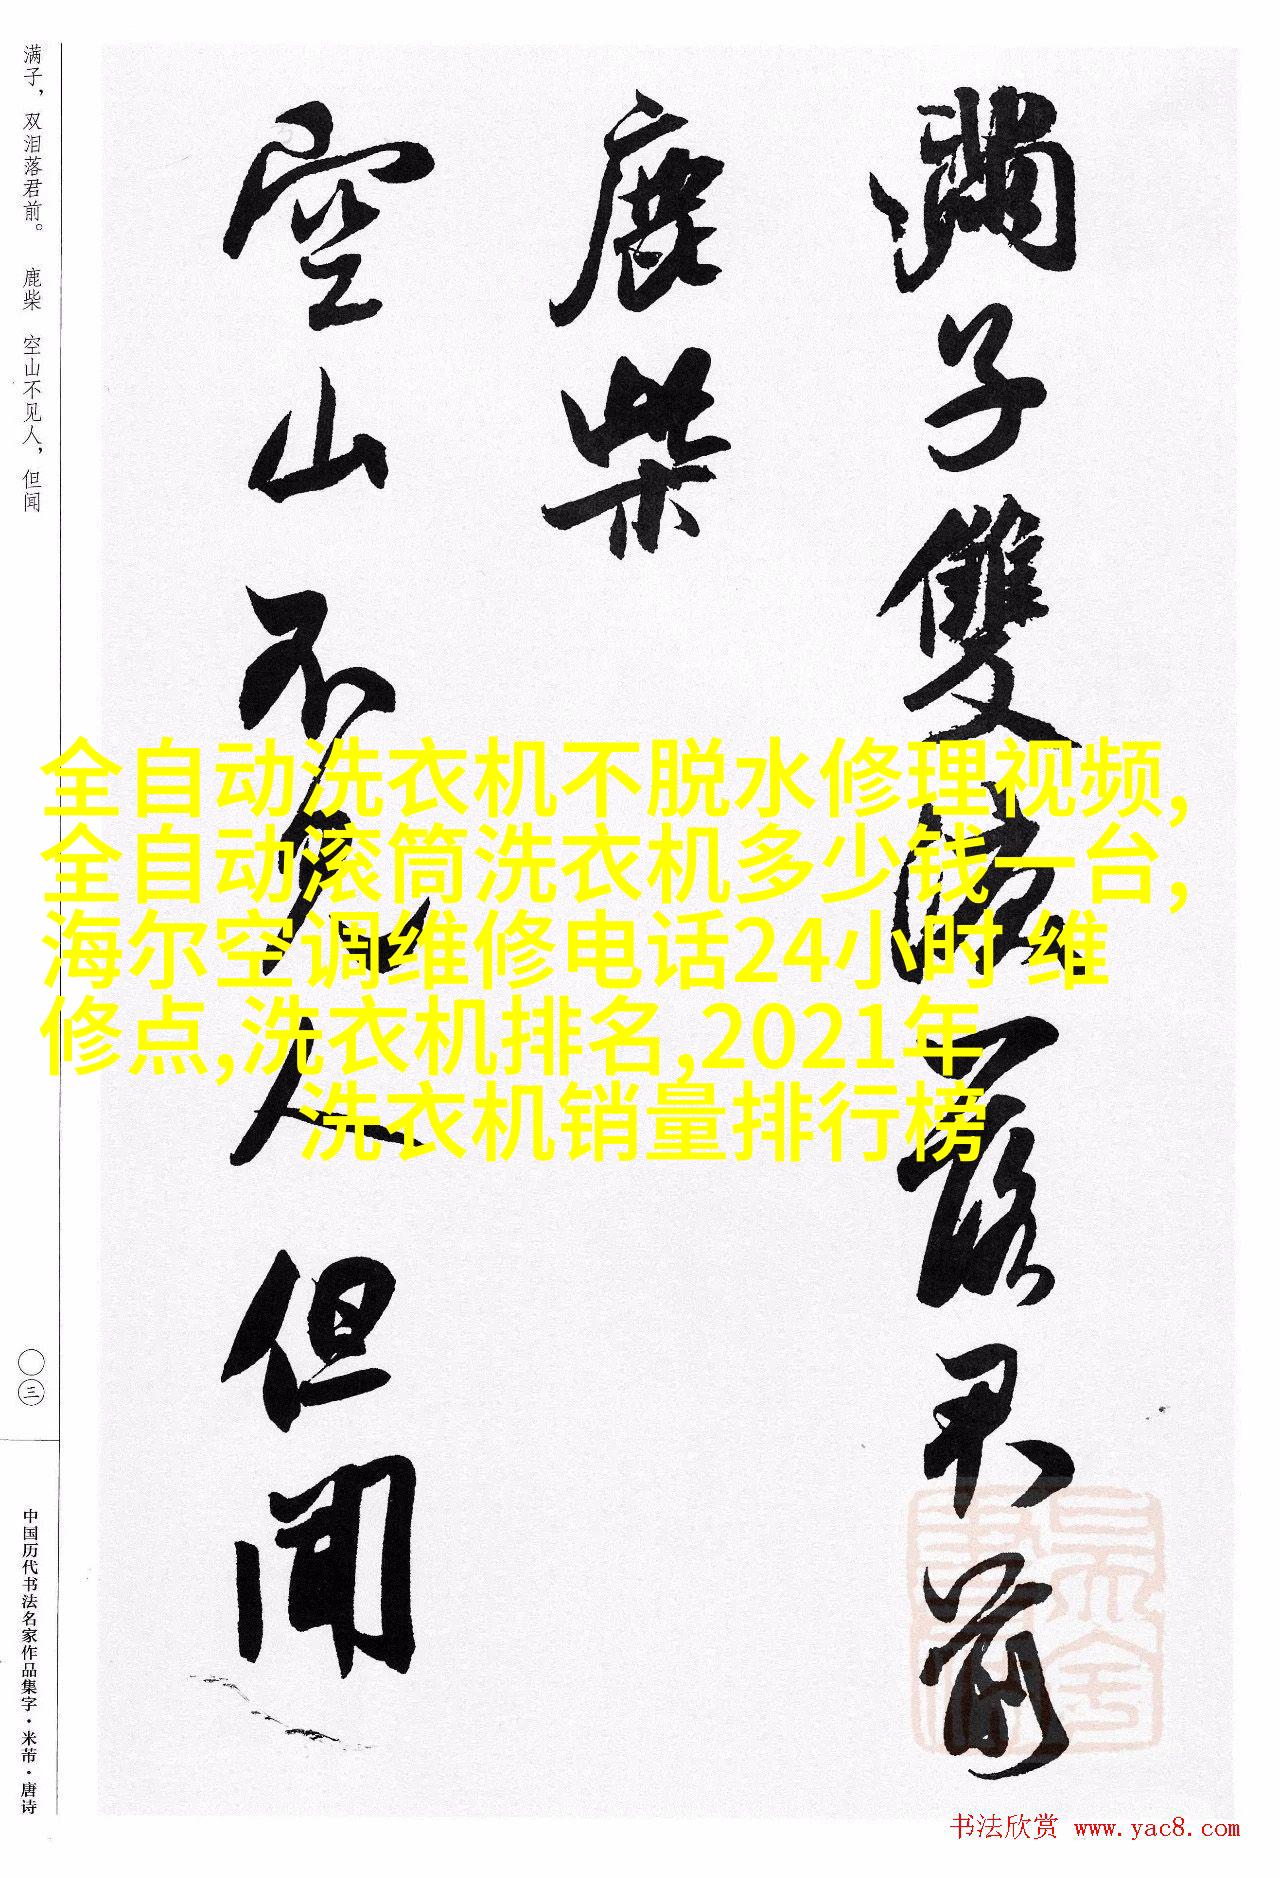 满子，双泪落君前。 鹿柴 空山不见人，但闻
〇三
中国历代书法名家作品集字·米芾·唐诗
滿子雙淚落君前
鹿柴
空山不見人但聞
全自动洗衣机不脱水修理视频,
全自动滚筒洗衣机多少钱一台,
海尔空调维修电话24小时 维
修点,洗衣机排名,2021年
洗衣机销量排行榜
书法欣赏 www.yac8.com